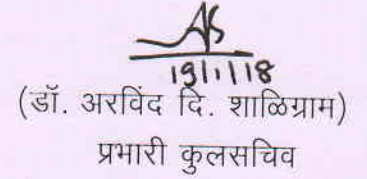 19/1/18
(डॉ. अरविंद दि. शाळिग्राम)
प्रभारी कुलसचिव